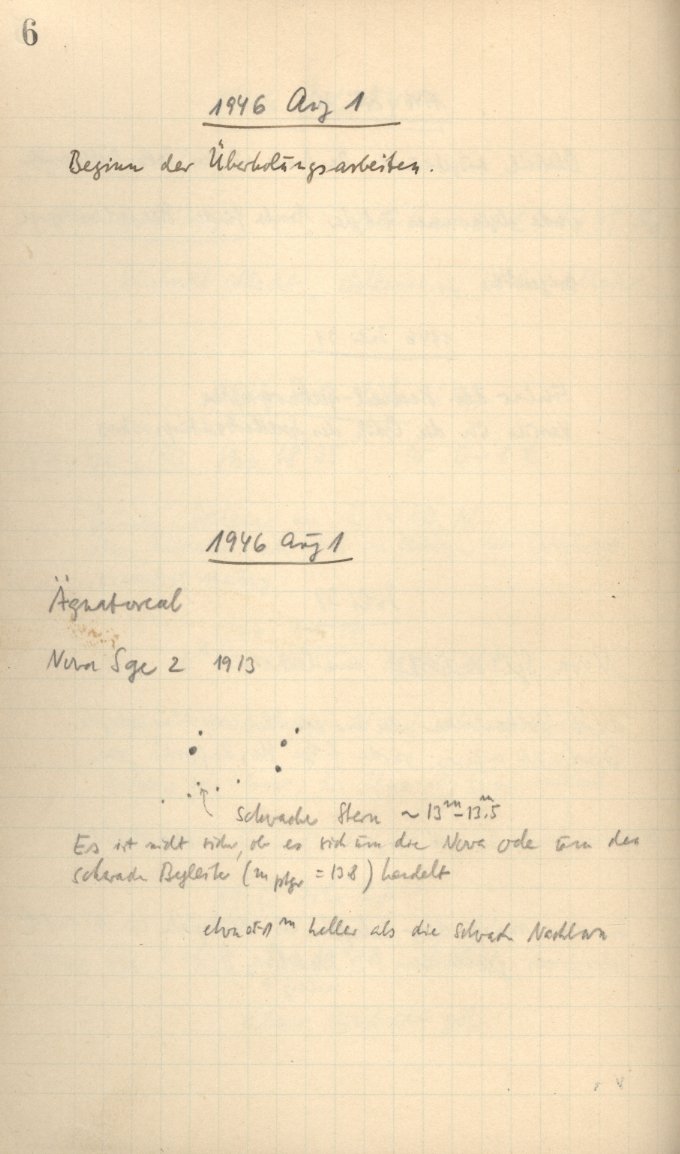 6
1946 Aug 1
Beginn der Überholungsarbeiten.
1946 Aug 1
Äquatoreal
Nova Sge 2 1913
schwacher Stern ~ 13ᵐ–13ᵐ.5
Es ist nicht sicher, ob es sich um die Nova oder um den
schwachen Begleiter (m ptgr = 13.8) handelt
etwa ᵐ heller als die schwachen Nachbarn